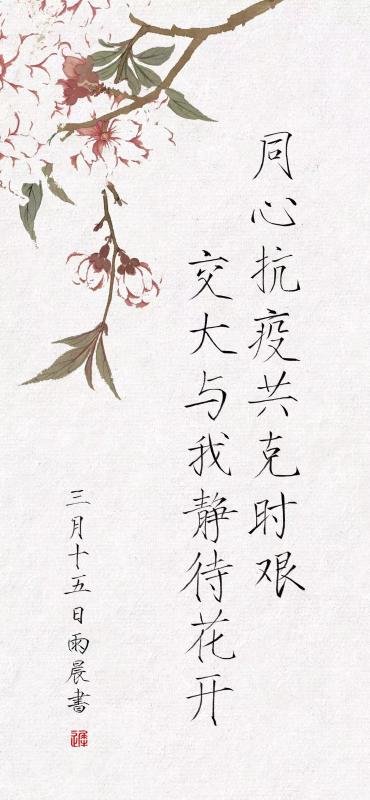 同心抗疫共克时艰
交大与我静待花开
三月十五日雨晨書